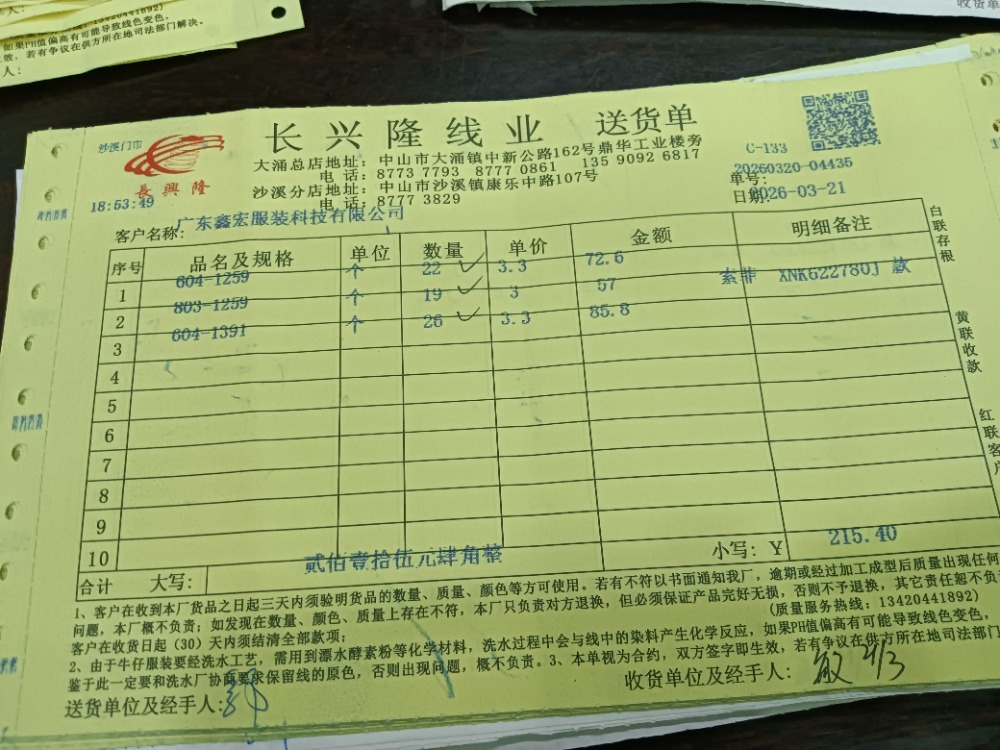 13420441892)
如果PH值偏高有可能导致线色变色，
效，若有争议在供方所在地司法部门解决。
人：
收货单
沙溪门市
長興隆
长兴隆线业 送货单
大涌总店地址：中山市大涌镇中新公路162号鼎华工业楼旁
电话：8773 7793 8777 0861 135 9092 6817
沙溪分店地址：中山市沙溪镇康乐中路107号
电话：8777 3829
C-133
单号：20260320-04435
日期：2026-03-21
18:53:49
客户名称：广东鑫宏服装科技有限公司
序号 品名及规格 单位 数量 单价 金额 明细备注
1 604-1259 个 22 3.3 72.6
2 803-1259 个 19 3 57 索菲 XNK622780J 款
3 604-1391 个 26 3.3 85.8
4
5
6
7
8
9
10
合计 大写：贰佰壹拾伍元肆角整 小写：Y 215.40
白联存根
黄联收款
红联客户
1、客户在收到本厂货品之日起三天内须验明货品的数量、质量、颜色等方可使用。若有不符以书面通知我厂，逾期或经过加工成型后质量出现任何
问题，本厂概不负责；如发现在数量、颜色、质量上存在不符，本厂只负责对方退换，但必须保证产品完好无损，否则不予退换，其它责任恕不负
客户在收货日起（30）天内须结清全部款项； (质量服务热线：13420441892)
2、由于牛仔服装要经洗水工艺，需用到漂水酵素粉等化学材料，洗水过程中会与线中的染料产生化学反应，如果PH值偏高有可能导致线色变色，
鉴于此一定要和洗水厂协商要求保留线的原色，否则出现问题，概不负责。3、本单视为合约，双方签字即生效，若有争议在供方所在地司法部门
送货单位及经手人：
收货单位及经手人： 敏 21/3